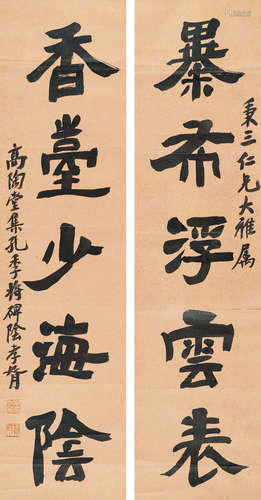 暴布浮雲表
秉三仁兄大雅属
香臺少海陰
高陶堂集孔季將碑陰李